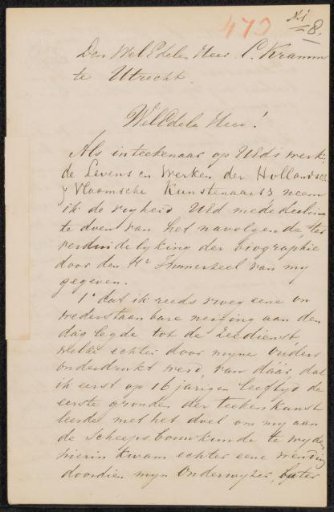 473
XI
8.
Den WelEdelen Heer C. Kramm
te Utrecht.
WelEdele Heer!
Als inteekenaar op UEds werk,
de Levens en Werken der Hollandsche
& Vlaamsche Kunstenaars neem
ik de vryheid UEd mededeeling
te doen van het navolgende, ter
verduidelyking der biographie
door den Hr Immerzeel van my
gegeven.
1o dat ik reeds vroeg eene on
wederstaanbare neiging aan den
dag legde tot de Zeedienst
welke echter door myne ouders
onderdrukt werd, van dáár dat
ik eerst op 16 jarigen leeftyd de
eerste gronden der teekenkunst
leerde met het doel om my aan
de Scheepsbouwkunde te wyden
hierin kwam echter eene wending
doordien myn Onderwyzer, later